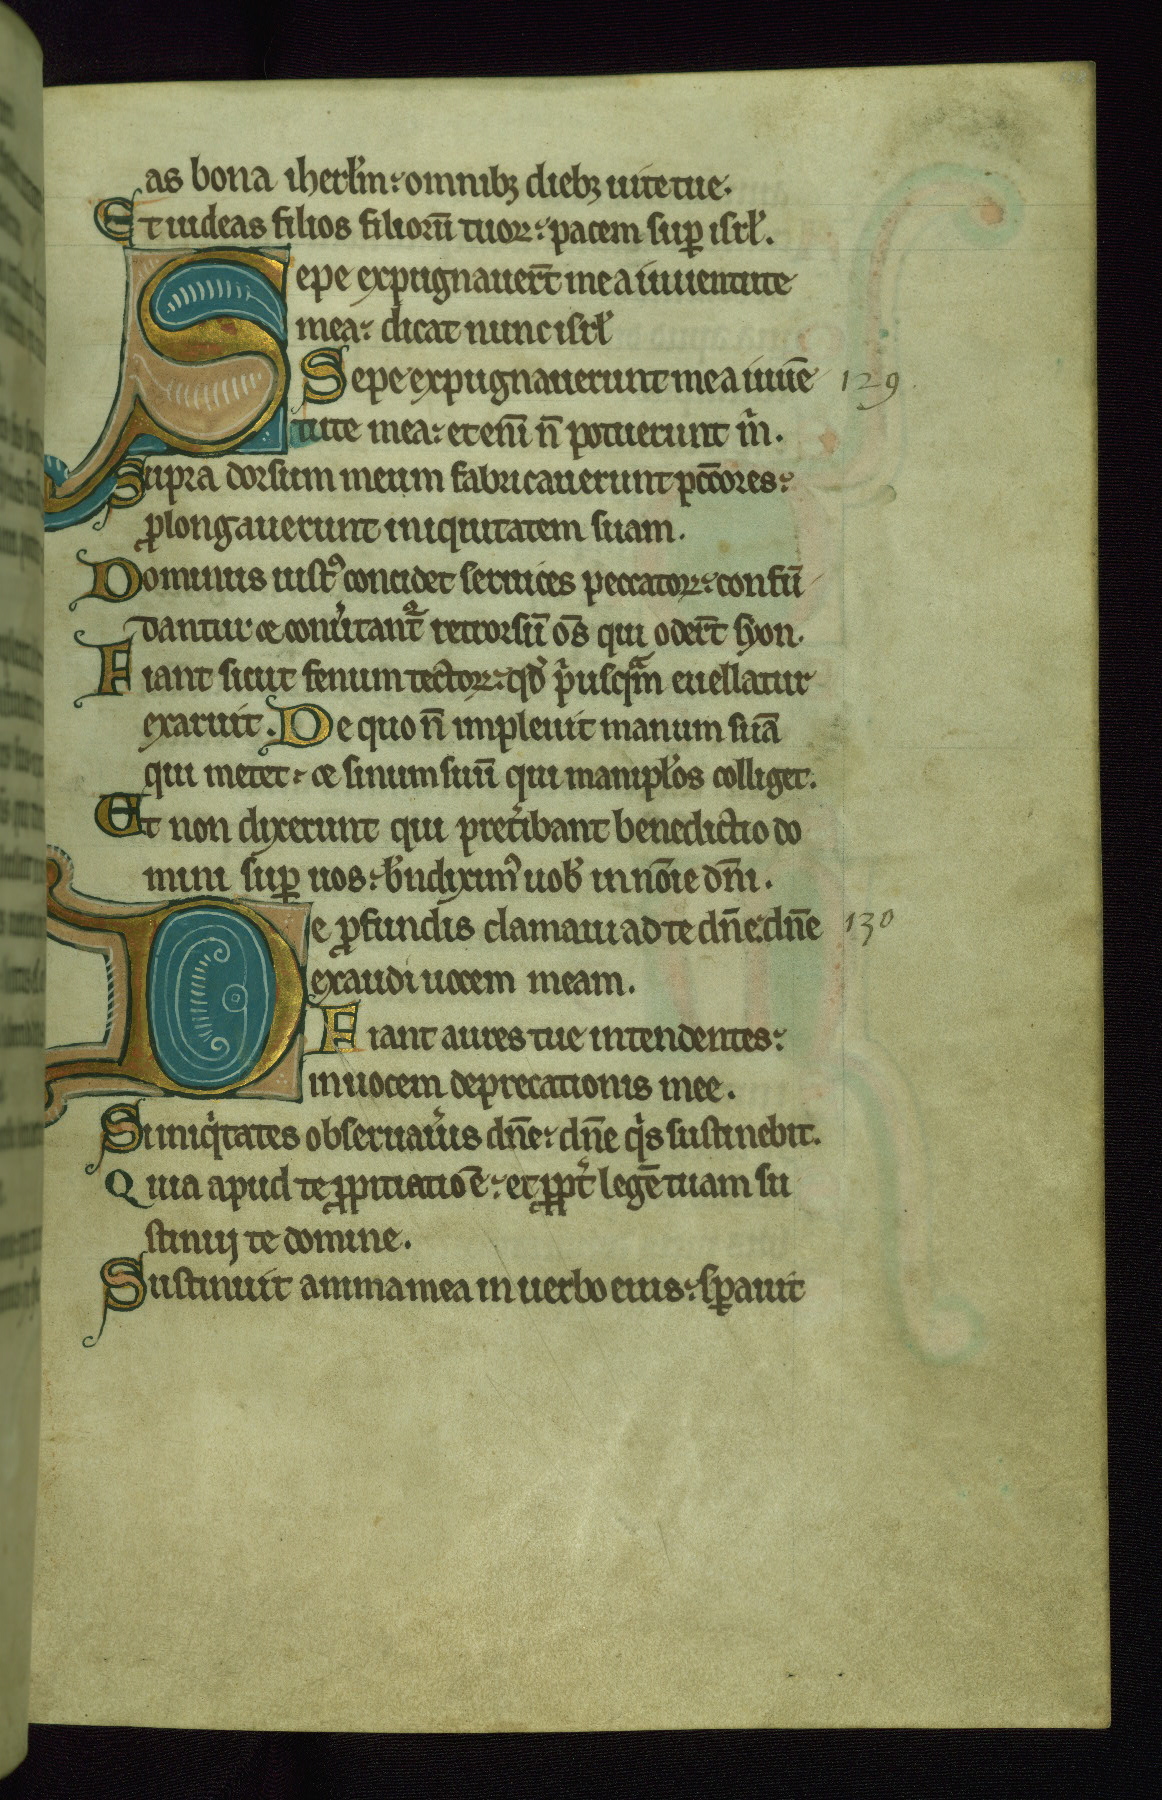 as bona iherl̃m: omnibꝫ diebꝫ uite tue.
Et uideas filios filioꝝ̃ tuoꝝ: pacem suꝑ isrl̃.
Sepe expugnauer̃t me a iuuentute
mea: dicat nunc isrl̃
Sepe expugnauerunt me a iuuẽ 129.
tute mea: eteni̅ n̅ potuerunt m̃.
Supra dorsum meum fabricauerunt pcc̃ores:
ꝓlongauerunt iniquitatem suam.
Dominus iustꝰ concidet ceruices peccatoꝝ: confũ
dantur & conu̾tant᷑ retrorsũ om̅s qui oder̃t syon.
Fiant sicut fenum tectoꝝ: qd̾ p̾usqᷓm euellatur
exaruit. De quo n̅ impleuit manum suã
qui metet: & sinum suũ qui manipl̾os colliget.
Et non dixerunt qui pret̾ibant benedictio do
mini suꝑ uos: b̾ndiximꝰ uob̾ in nom̅ie dn̅i.
De ꝓfundis clamaui ad te dn̅e: dn̅e 130
exaudi uocem meam.
Fiant aures tue intendentes:
in uocem deprecationis mee.
Si iniq̾tates obseruau̾is dn̅e: dn̅e q̾s sustinebit.
Quia apud te ꝓpitiatio ẽ: et ꝓpt̾ legẽ tuam su
stinuj te domine.
Sustinuit anima mea in uerbo eius: sꝑauit